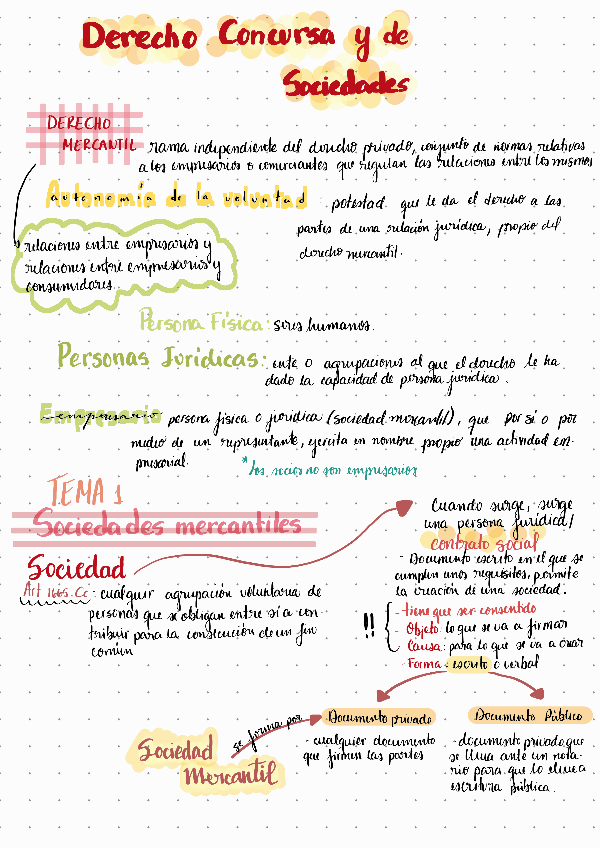 Derecho Concursa y de
Sociedades
DERECHO
MERCANTIL
rama independiente del derecho privado, conjunto de normas relativas
a los empresarios o comerciantes que regulan las relaciones entre los mismos
Autonomía de la voluntad : potestad que le da el derecho a las
partes de una relación jurídica, propio del
derecho mercantil.
relaciones entre empresarios y
relaciones entre empresarios y
consumidores.
Persona Física: seres humanos.
Personas Jurídicas: ente o agrupaciones al que el derecho le ha
dado la capacidad de persona jurídica.
Empresario persona física o jurídica (sociedad mercantil), que por sí o por
medio de un representante, ejercita en nombre propio una actividad em-
presarial.
*los socios no son empresarios
TEMA 1
Sociedades mercantiles
Sociedad
Art 1665.Cc: cualquier agrupación voluntaria de
personas que se obligan entre sí a con-
tribuir para la consecución de un fin
común
Cuando surge, surge
una persona jurídica/
contrato social
- Documento escrito en el que se
cumplen unos requisitos, permite
la creación de una sociedad.
!!
- tiene que ser consentido
- Objeto: lo que se va a firmar
- Causa: para lo que se va a crear
- Forma: escrito o verbal
Sociedad
Mercantil
se forma por
Documento privado
- cualquier documento
que firmen las partes
Documento Público
- documento privado que
se lleva ante un nota-
rio para que lo eleve a
escritura pública.